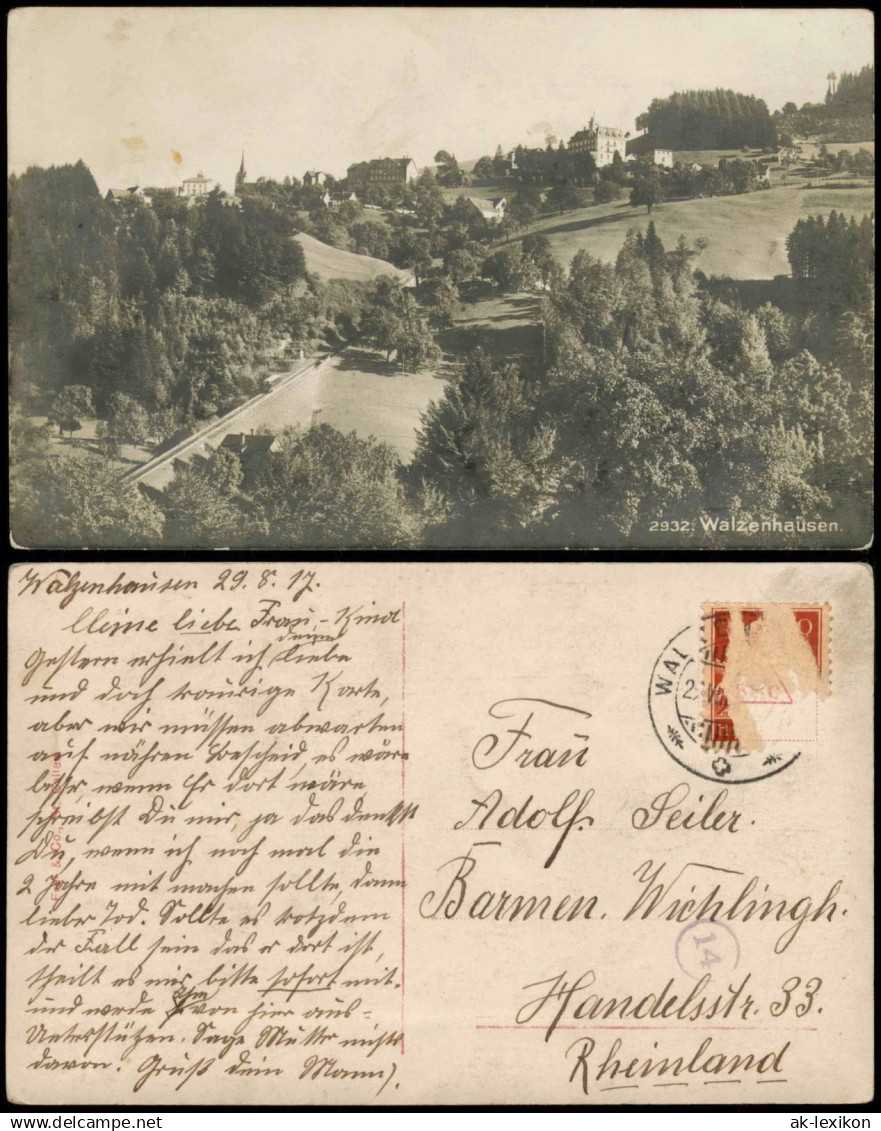 2932. Walzenhausen.
Walzenhausen 29. 8. 17.
Meine liebe Frau, - Kind
Gestern erhielt ich deine liebe
und doch traurige Karte,
aber wir müssen abwarten
auf nähren Bescheid, es wäre
besser, wenn Er dort wäre
schreibst Du mir, ja das denkst
Du, wenn ich noch mal die
2 Jahre mit machen sollte, dann
lieber Tod. Sollte es trotzdem
der Fall sein das er dort ist,
theilt es mir bitte sofort mit.
und werde ihm von hier aus-
Unterstützen. Sage Mutter nichts
davon. Gruß dein Mann).
WAL
Frau
Adolf Seiler.
Barmen. Wichlingh.
14
Handelsstr. 33.
Rheinland
ak-ansichtskarten.de
ak-lexikon